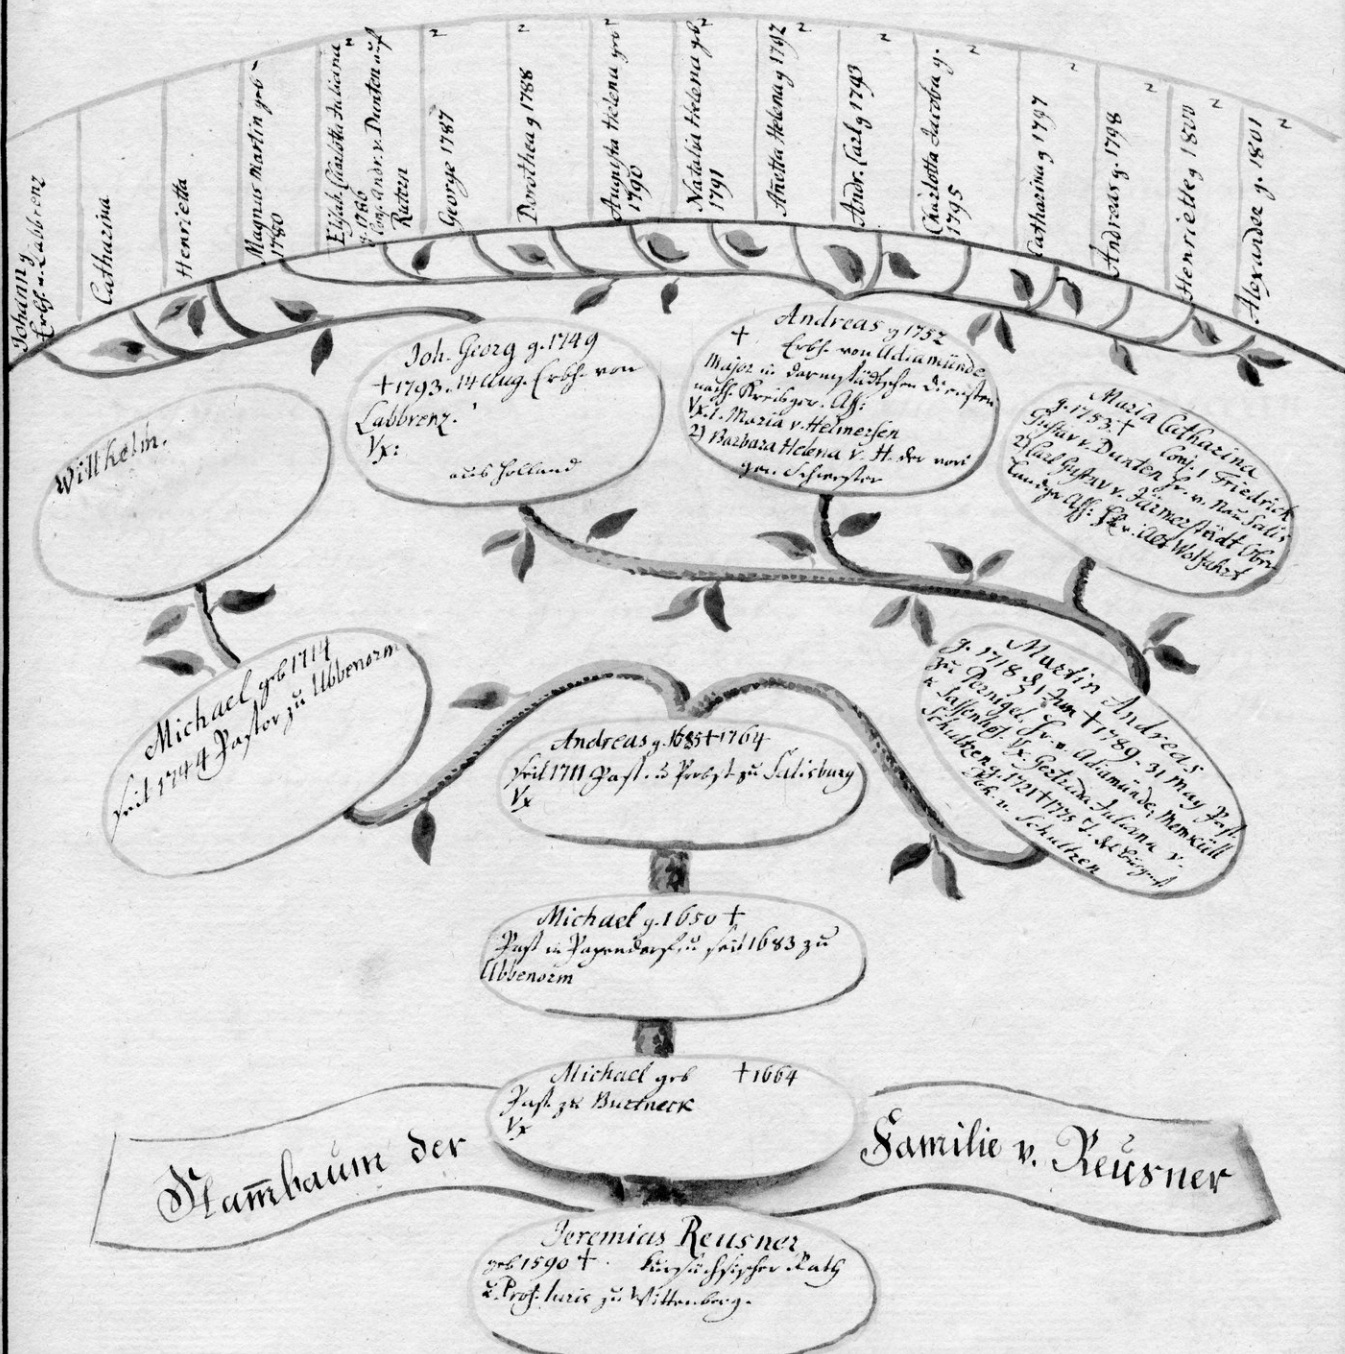 Johann g
Erbh. v. Labbrenz
Catharina
Henrietta
Magnus Martin geb
1780
Elisab. Charlotta Juliana
g. 1786
Conj. Andr. v. Dunten auf
Rutzen
George 1787
Dorothea g 1788
Augusta Helena geb
1790
Natalia Helena geb.
1791
Añetta Helena g 1792
Andr. Carl g 1793
Charlotta Jacobina g.
1795
Catharina g 1797
Andreas g. 1798
Henriette g. 1800
Alexander g. 1801
Willhelm.
Joh. Georg g. 1749
† 1793. 14 Aug. Erbh. von
Labbrenz.
Vx:
aus Holland
Andreas g 1752
† Erbh. von Adiamünde
Major in darmstädtschen Diensten
nachh. Kreisger. Ass:
Vx. 1. Maria v. Helmersen
2) Barbara Helena v. H. der vori
gen Schwester
Maria Catharina
g. 1753. † Conj. 1 Friedrich
Gustav v. Dunten Hr. v. Neu Salis
2) Carl Gustav v. Jürmerstädt Ober
Landger. Ass: Hr. v. Alt Wolfahrt
Michael geb 1714
seit 1744 Pastor zu Ubbenorm
Martin Andreas
g. 1718 d 1 Jun † 1789. 31 May Past.
zu Pernigel. Hr. v. Adiamünde, Memküll
u Lassenhof. Vx. Gertruda Juliana v.
Schultzen g. 1721 † 1775 T. des Bürgmst
Joh. v. Schultzen
Andreas g. 1685 † 1764
seit 1711 Past. u Probst zu Salisburg
Vx
Michael g. 1650 †
Past in Papendorf, u seit 1683 zu
Ubbenorm
Michael geb † 1664
Past. zu Burtneck
Vx
Stam̄baum der Familie v. Reusner
Jeremias Reusner
geb 1590 †. Kursächsischer Rath
u. Prof. Iuris zu Wittenberg.